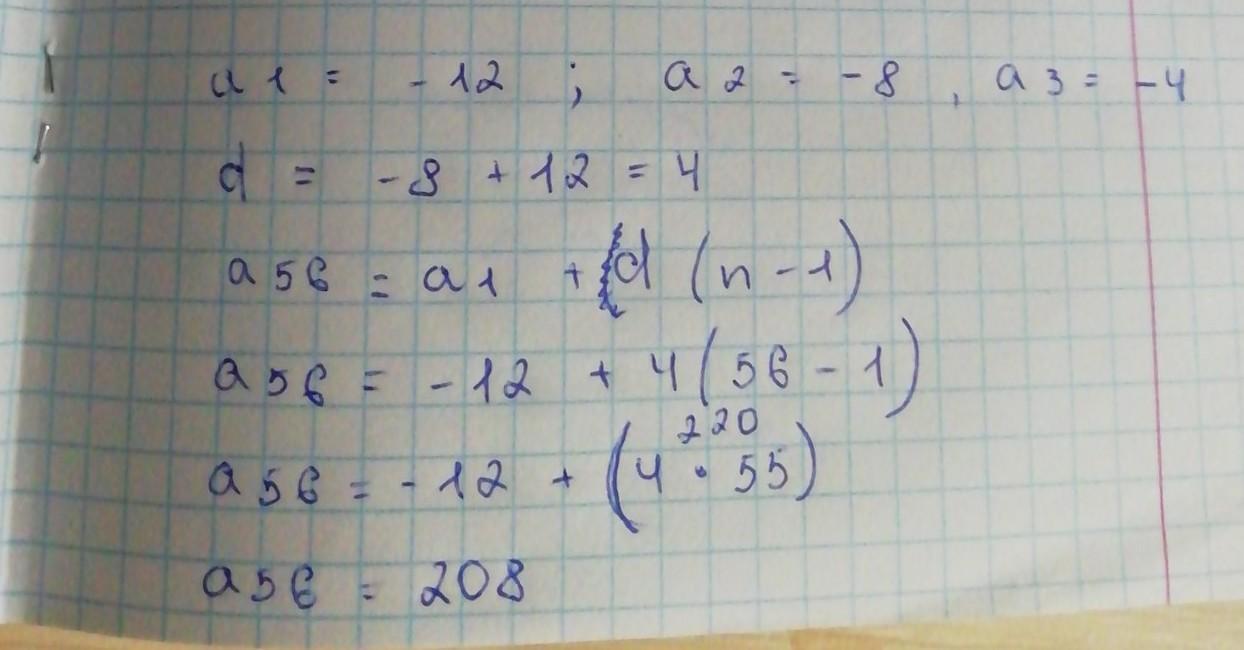 a1 = -12 ; a2 = -8 , a3 = -4
d = -8 + 12 = 4
a56 = a1 + d (n - 1)
a56 = -12 + 4(56 - 1)
220
a56 = -12 + (4 · 55)
a56 = 208